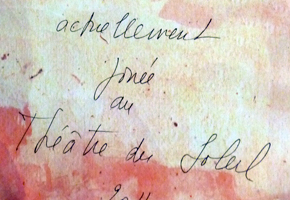 actuellement
jouée
au
Théâtre du Soleil